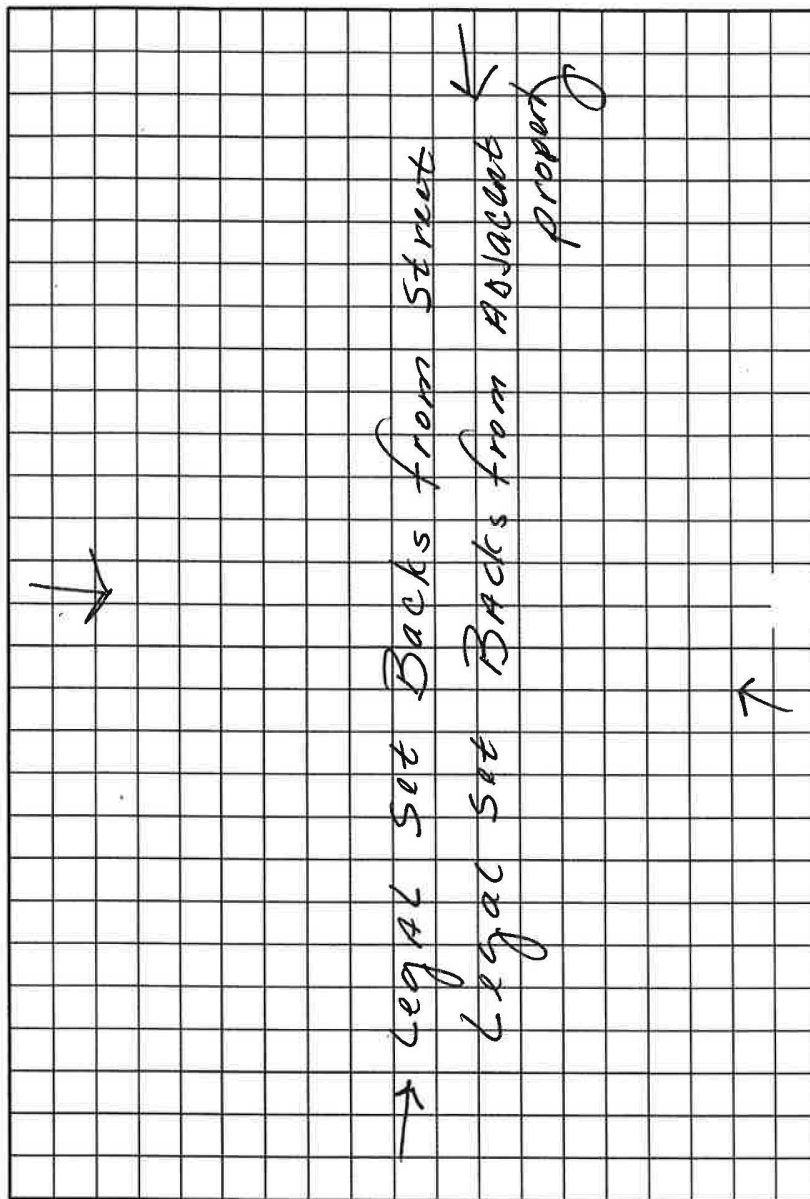 Legal Set Backs from Street
Legal Set Backs from Adjacent
property